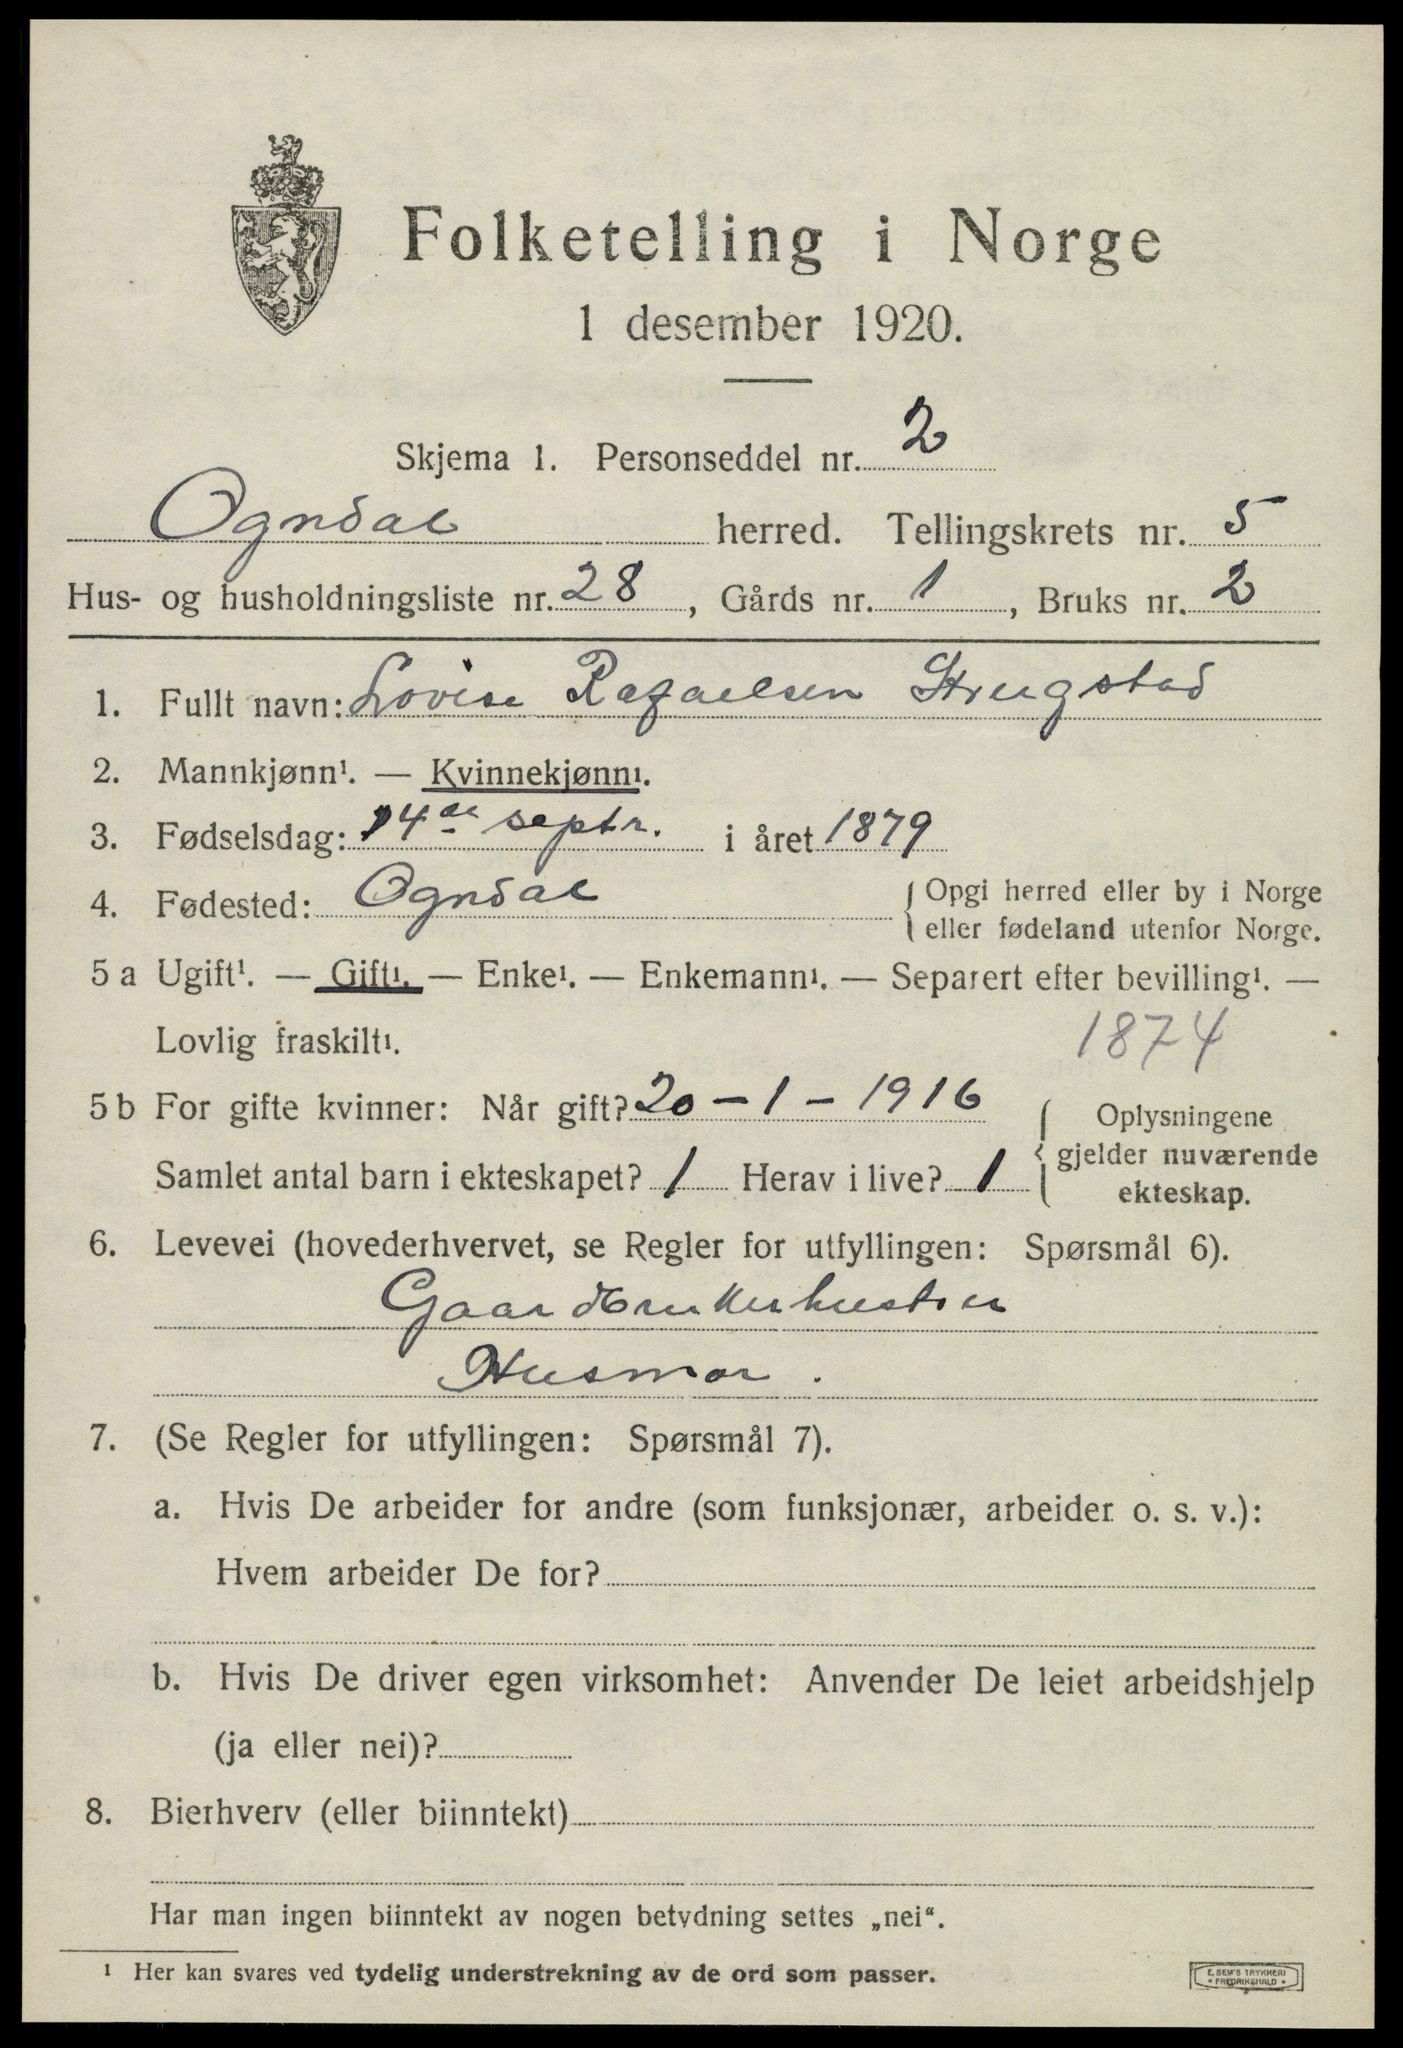 Folketelling i Norge
1 desember 1920.
Skjema 1. Personseddel nr. 2
Ogndal herred. Tellingskrets nr. 5
Hus- og husholdningsliste nr. 28, Gårds nr. 1, Bruks nr. 2
1. Fullt navn: Lovise Rafaelsen Strugstad
2. Mannkjønn¹. — Kvinnekjønn¹.
3. Fødselsdag: 14de septr. i året 1879
4. Fødested: Ogndal { Opgi herred eller by i Norge
eller fødeland utenfor Norge.
5 a Ugift¹. — Gift¹. — Enke¹. — Enkemann¹. — Separert efter bevilling¹. —
Lovlig fraskilt¹. 1874
5 b For gifte kvinner: Når gift? 20 – 1 – 1916 { Oplysningene
gjelder nuværende
ekteskap.
Samlet antal barn i ekteskapet? 1 Herav i live? 1
6. Levevei (hovederhvervet, se Regler for utfyllingen: Spørsmål 6).
Gaardbrukerhustru
Husmor.
7. (Se Regler for utfyllingen: Spørsmål 7).
a. Hvis De arbeider for andre (som funksjonær, arbeider o. s. v.):
Hvem arbeider De for?
b. Hvis De driver egen virksomhet: Anvender De leiet arbeidshjelp
(ja eller nei)?
8. Bierhverv (eller biinntekt)
Har man ingen biinntekt av nogen betydning settes „nei“.
¹ Her kan svares ved tydelig understrekning av de ord som passer.
E. SEM'S TRYKKERI
• FREDRIKSHALD •